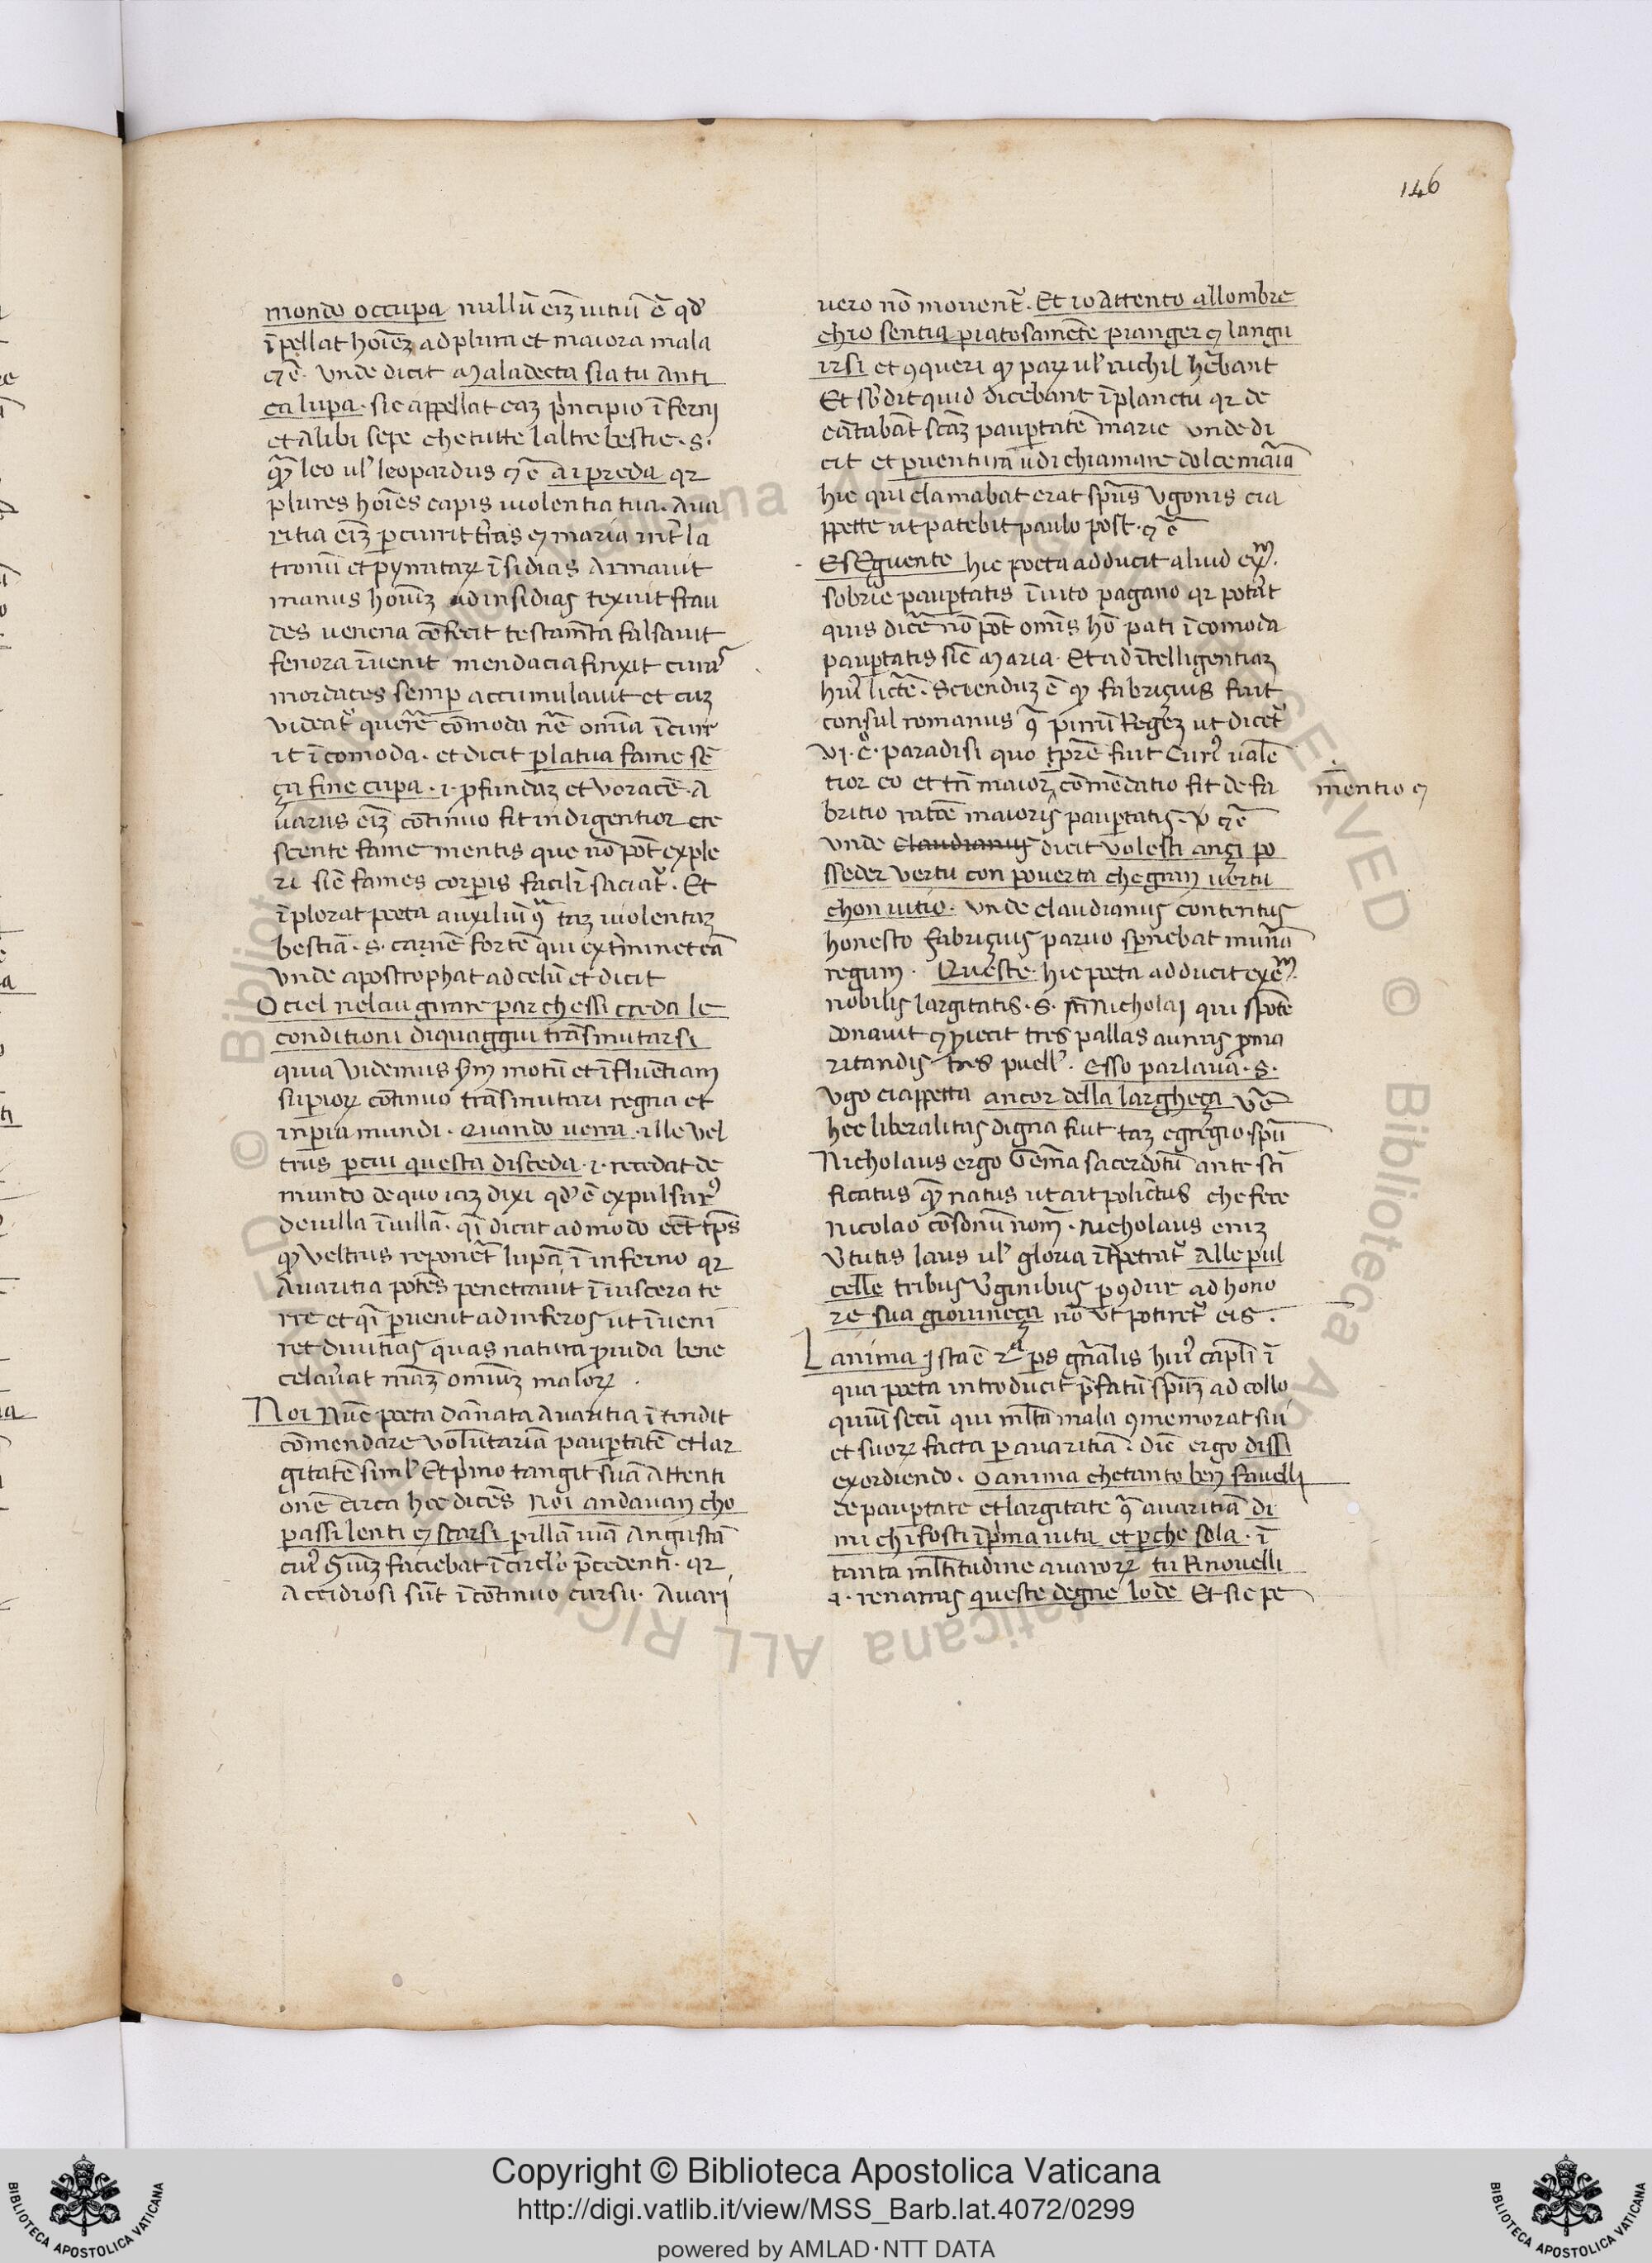 146
mondo occupa nullũ eiʒ uitiũ ẽ qđ
ĩpellat hoĩeʒ ad plura et maiora mala
⁊ẽ. Unde dicit Maladecta sia tu anti
ca lupa. sic appellat eaʒ p̃ncipio ĩferni
et alibi sepe che tutte laltre bestie. s.
qua̅ leo ul' leopardus ⁊ẽ ai preda qr
plures hoĩes capis uiolentia tua. Aua
ritia eiʒ percurrit t̃ras ⁊ maria int̃ la
tronũ et pyratarꝝ ĩsidias Armauit
manus hoĩuʒ ad insidias texuit frau
des uenena cõfecit testam̃ta falsauit
fenora ĩuenit mendacia finxit curas
mordaces semꝑ accumulauit et cuʒ
videat̃ querẽ cõmoda om̃ia ĩcurr
it ĩcomoda. et dicit per la tua fame sẽ
ça fine cupa .i. profundaʒ et voracẽ. A
uarus eiʒ cõtinuo fit indigentior cre
scente fame mentis que nõ põt exple
ri sic̃ fames corꝑis facilĩ saciat̃. Et
ĩplorat poeta auxiliũ 9̃ taʒ uiolentaʒ
bestiã .s. carnẽ fortẽ qui ext̃minet eã
unde apostrophat ad celũ et dicit
O ciel nel cui girare par che ssi creda le
conditioni di qua ggiu trãsmutarsi
quia videmus motũ et ĩfluẽtiam
suꝑiorꝝ cõtinuo trãsmutari regna et
inꝑia mundi. Quando uerra .ille vel
trus per cui questa disceda .i. recedat de
mundo de quo iaʒ dixi qđ ẽ expulsur9
de uilla ĩ uillã. q̃ĩ dicat admodo ẽẽt tp̃s
qꝫ veltrus reponẽt lupã ĩ inferno qr
Auaritia potẽs penetrauit ĩ uiscera te
rre et q̃ĩ peruenit ad inferos ut ĩueni
ret diuitias quas natura prouida bene
celau̾at mãʒ omĩuʒ malorꝝ.
Noi Nũc poeta dãnata Auaritia ĩtendit
cõmendare voluntariã pauꝑtatẽ et lar
gitatẽ siml' Et p̃mo tangit suã Attenti
onẽ circa hec dicẽs Noi andauan cho
passi lenti ⁊ scarsi ꝑ illã uiã Angustã
cui9 faciebat ĩ circl'o p̃cedenti. qr
Accidiosi sũt ĩ cõtinuo cursu. Auari
uero nõ mouent̃. Et io attento allombre
chio sentia piatosamẽte pianger ⁊ langu
irsi et 9queri qꝫ parꝝ ul' nichil hẽbant
Et sb̃dit quid dicebant ĩ planctu qr de
cãtabãt scãʒ pauꝑtatẽ marie unde di
cit et ꝑ uentura udi chiamare dolce maria
hic qui clamabat erat sp̃us Vgonis cia
ppette ut patebit paulo post. ⁊ẽ
E seguente hic poeta adducit aliud exm̃.
sobrie pauꝑtatis ĩ uiro pagano qr pot̾at
quis dicẽ nõ põt om̃is hõ pati ĩcomoda
pauꝑtatis sic̃ Maria. Et ad ĩtelligentiaʒ
hui9 lict̃e. Sciendũʒ ẽ qꝫ fabriçius fuit
consul romanus 9̃ pirrũ Regeʒ ut dicet̃
vi. c̊. paradisi quo tp̃re fuit Curi9 ualẽ
tior eo et tñ maiorʒ cõmẽdatio fit de fa
mẽntio ⁊
britio ratõe maioris pauꝑtatis. ⁊ẽ
unde Claudianus dicit volesti ançi po
sseder vertu con pouerta che gran uertu
chon uitio. Unde Claudianus contentus
honesto fabriçius paruo sꝑnebat mun̾a
regum. Queste hic poeta adducit exem̃.
nobilis largitatis .s. sc̃i Nicholai qui spõte
donauit ⁊ proiecit tres pallas auri ꝓ ma
ritandis tres puell'. Esso parlaua .s.
Vgo ciappetta ancor della largheça
hec liberalitas digna fuit taʒ egregio sp̃u
Nicholaus ergo Gẽma sacerdotũ ante sc̃i
ficatus qua̅ natus ut ait polict̃us che fece
Nicolao cõsonũ nom̃. Nicholaus eniʒ
u̾tutis laus ul' gloria ĩt̾petrat̃ Alle pul
celle tribus V̾ginibus ꝑ 9dur ad hono
re sua giouineça nõ ut potiret̃ eis.
L anima Ista ẽ 2ᵃ ꝑs gñalis hui9 capl'i ĩ
qua poeta introducit p̃fatũ sp̃uʒ ad collo
quiũ secũ qui ml'ta mala 9memorat sui
et suorꝝ facta per auaritiã. dic̃ ergo dissi
exordiendo. O anima che tanto ben fauelli
de pauꝑtate et largitate 9̃ auaritiã di
mi chi fosti ĩ p̃ma uita et perche sola. ĩ
tanta ml'titudine auarorꝝ tu Rinouelli
.i. renarras queste degne lode Et sic pe
Copyright © Biblioteca Apostolica Vaticana
http://digi.vatlib.it/view/MSS_Barb.lat.4072/0299
powered by AMLAD·NTT DATA